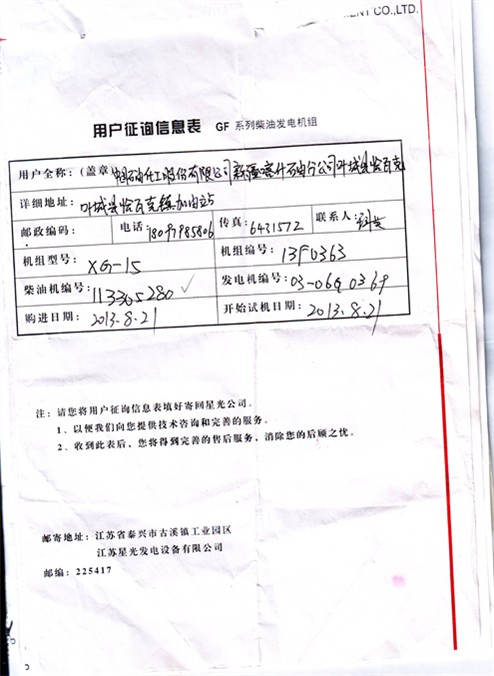 ENT CO.,LTD.
用户征询信息表 GF 系列柴油发电机组
用户全称：（盖章）中国石油化工股份有限公司新疆喀什石油分公司叶城县恰瓦克
详细地址： 叶城县恰瓦克镇加油站
邮政编码： 电话：18097985806 传真：6431572 联系人：
机组型号： XG-15 机组编号： 13F0363
柴油机编号：113305280 发电机编号：03-06Q0369
购进日期： 2013.8.21 开始试机日期： 2013.8.21
注：请您将用户征询信息表填好寄回星光公司。
1、以便我们向您提供技术咨询和完善的服务。
2、收到此表后，您将得到完善的售后服务，消除您的后顾之忧。
邮寄地址：江苏省泰兴市古溪镇工业园区
江苏星光发电设备有限公司
邮编：225417